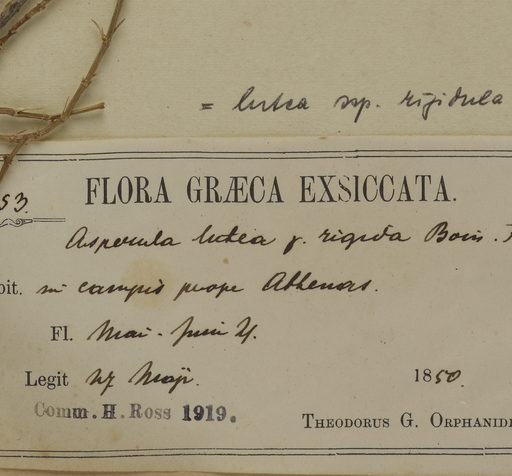 = lutea ssp. rigidula
53.
FLORA GRÆCA EXSICCATA.
Asperula lutea γ. rigida Boiss.
bit. in campis prope Athenas.
Fl. Mai - Juni ♃.
Legit 27 Maji. 1850.
Comm. H. Ross 1919.
THEODORUS G. ORPHANID